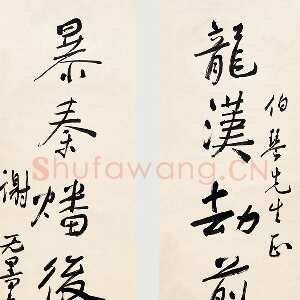 伯琴先生正
龍漢劫前
暴秦燔後
謝无量
Shufawang.CN